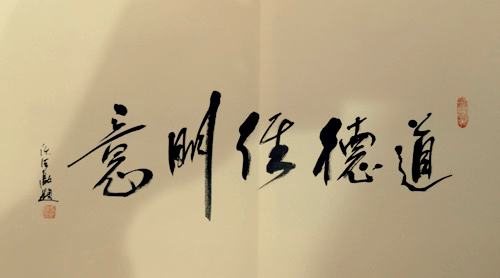 道德经明意